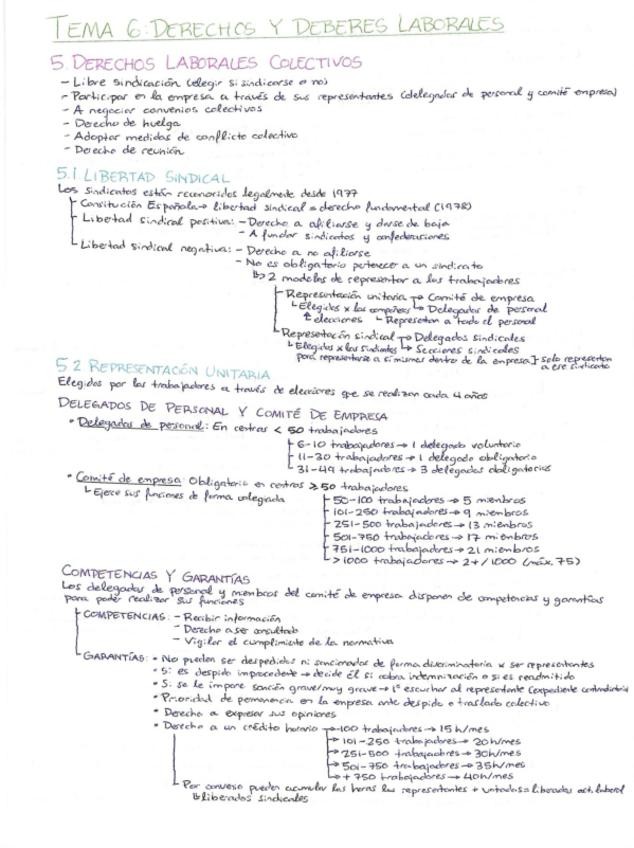 TEMA 6: DERECHOS Y DEBERES LABORALES
5. DERECHOS LABORALES COLECTIVOS
- Libre sindicación (elegir si sindicarse o no)
- Participar en la empresa a través de sus representantes (delegados de personal y comité empresa)
- A negociar convenios colectivos
- Derecho de huelga
- Adoptar medidas de conflicto colectivo
- Derecho de reunión
5.1. LIBERTAD SINDICAL
Los sindicatos están reconocidos legalmente desde 1977
Constitución Española → libertad sindical = derecho fundamental (1978)
Libertad sindical positiva: - Derecho a afiliarse y darse de baja
- A fundar sindicatos y confederaciones
Libertad sindical negativa: - Derecho a no afiliarse
- No es obligatorio pertenecer a un sindicato
↳ 2 modelos de representar a los trabajadores
Representación unitaria → Comité de empresa
↳ Elegidos x los compañeros → Delegados de personal
↑ elecciones ↳ Representan a todo el personal
Representación sindical → Delegados sindicales
↳ Elegidos x los sindicatos → Secciones sindicales
para representarse a sí mismos dentro de la empresa } solo representan
a ese sindicato
5.2 REPRESENTACIÓN UNITARIA
Elegidos por los trabajadores a través de elecciones que se realizan cada 4 años
DELEGADOS DE PERSONAL Y COMITÉ DE EMPRESA
• Delegados de personal: En centros < 50 trabajadores
6-10 trabajadores → 1 delegado voluntario
11-30 trabajadores → 1 delegado obligatorio
31-49 trabajadores → 3 delegados obligatorios
• Comité de empresa: Obligatorio en centros ≥ 50 trabajadores
↳ Ejerce sus funciones de forma colegiada
50-100 trabajadores → 5 miembros
101-250 trabajadores → 9 miembros
251-500 trabajadores → 13 miembros
501-750 trabajadores → 17 miembros
751-1000 trabajadores → 21 miembros
> 1000 trabajadores → 2+/1000 (máx. 75)
COMPETENCIAS Y GARANTÍAS
Los delegados de personal y miembros del comité de empresa disponen de competencias y garantías
para poder realizar sus funciones
COMPETENCIAS: - Recibir información
- Derecho a ser consultado
- Vigilar el cumplimiento de la normativa
GARANTÍAS: • No pueden ser despedidos ni sancionados de forma discriminatoria x ser representantes
• Si es despido improcedente → decide él si cobra indemnización o si es readmitido
• Si se le impone sanción grave/muy grave → 1º escuchar al representante (expediente contradictorio)
• Prioridad de permanencia en la empresa ante despido o traslado colectivo
• Derecho a expresar sus opiniones
• Derecho a un crédito horario → -100 trabajadores → 15 h/mes
→ 101-250 trabajadores → 20h/mes
→ 251-500 trabajadores → 30h/mes
→ 501-750 trabajadores → 35h/mes
→ + 750 trabajadores → 40h/mes
Por convenio pueden acumular las horas los representantes + = liberados act. laboral
↳ liberados sindicales